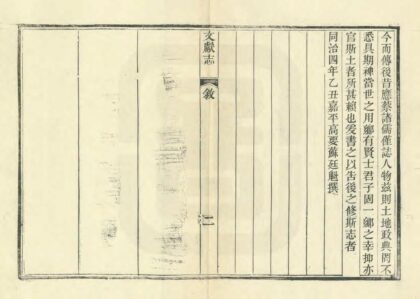 今而傳後昔應蔡諸儒僅誌人物茲則土地政典罔不
悉具期裨當世之用鄉有賢士君子固一鄉之幸抑亦
官斯土者所甚賴也爰書之以告後之修斯志者
同治四年乙丑嘉平高要蘇廷魁撰
文獻志
敘
二